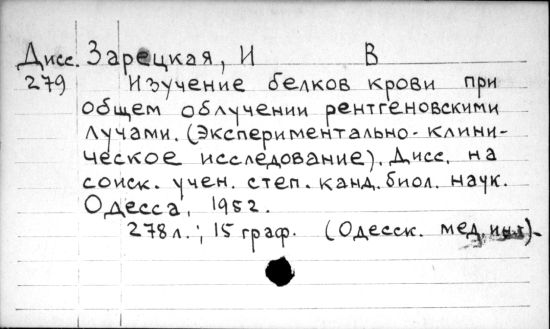 Дисс. Зарецкая, И В
279 Изучение белков крови при
общем облучении рентгеновскими
лучами. (Экспериментально-клини-
ческое исследование). Дисс. на
соиск. учен. степ. канд. биол. наук.
Одесса, 1952.
278 л.; 15 граф. (Одесск. мед. ин-т)-